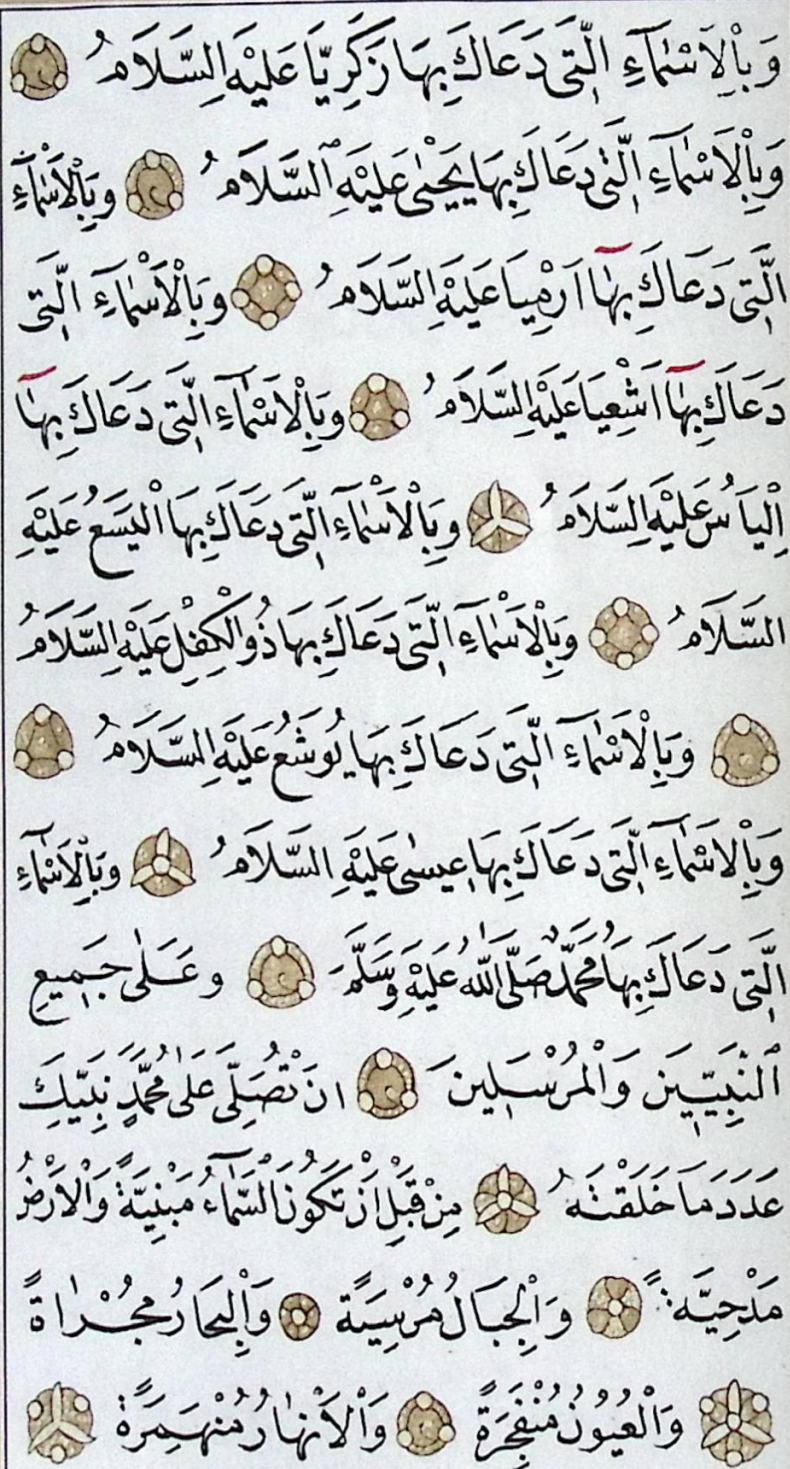 وَبِالْاَسْمَآءِ الَّتِى دَعَاكَ بِهَا زَكَرِيَّا عَلَيْهِ السَّلَامُ
وَبِالْاَسْمَآءِ الَّتِى دَعَاكَ بِهَا يَحْيٰى عَلَيْهِ السَّلَامُ وَبِالْاَسْمَآءِ
الَّتِى دَعَاكَ بِهَآ اَرْمِيَا عَلَيْهِ السَّلَامُ وَبِالْاَسْمَآءِ الَّتِى
دَعَاكَ بِهَآ اَشْعِيَا عَلَيْهِ السَّلَامُ وَبِالْاَسْمَآءِ الَّتِى دَعَاكَ بِهَآ
اِلْيَاسُ عَلَيْهِ السَّلَامُ وَبِالْاَسْمَآءِ الَّتِى دَعَاكَ بِهَا الْيَسَعُ عَلَيْهِ
السَّلَامُ وَبِالْاَسْمَآءِ الَّتِى دَعَاكَ بِهَا ذُوالْكِفْلِ عَلَيْهِ السَّلَامُ
وَبِالْاَسْمَآءِ الَّتِى دَعَاكَ بِهَا يُوشَعُ عَلَيْهِ السَّلَامُ
وَبِالْاَسْمَآءِ الَّتِى دَعَاكَ بِهَا عِيسٰى عَلَيْهِ السَّلَامُ وَبِالْاَسْمَآءِ
الَّتِى دَعَاكَ بِهَا مُحَمَّدٌ صَلَّى اللّٰهُ عَلَيْهِ وَسَلَّمَ وَعَلٰى جَمِيعِ
النَّبِيِّينَ وَالْمُرْسَلِينَ اَنْ تُصَلِّىَ عَلٰى مُحَمَّدٍ نَبِيِّكَ
عَدَدَ مَا خَلَقْتَهُ مِنْ قَبْلِ اَنْ تَكُونَ السَّمَآءُ مَبْنِيَّةً وَالْاَرْضُ
مَدْحِيَّةً وَالْجِبَالُ مُرْسِيَةً وَالْبِحَارُ مُجْرٰاةً
وَالْعُيُونُ مُنْفَجِرَةً وَالْاَنْهَارُ مُنْهَمِرَةً